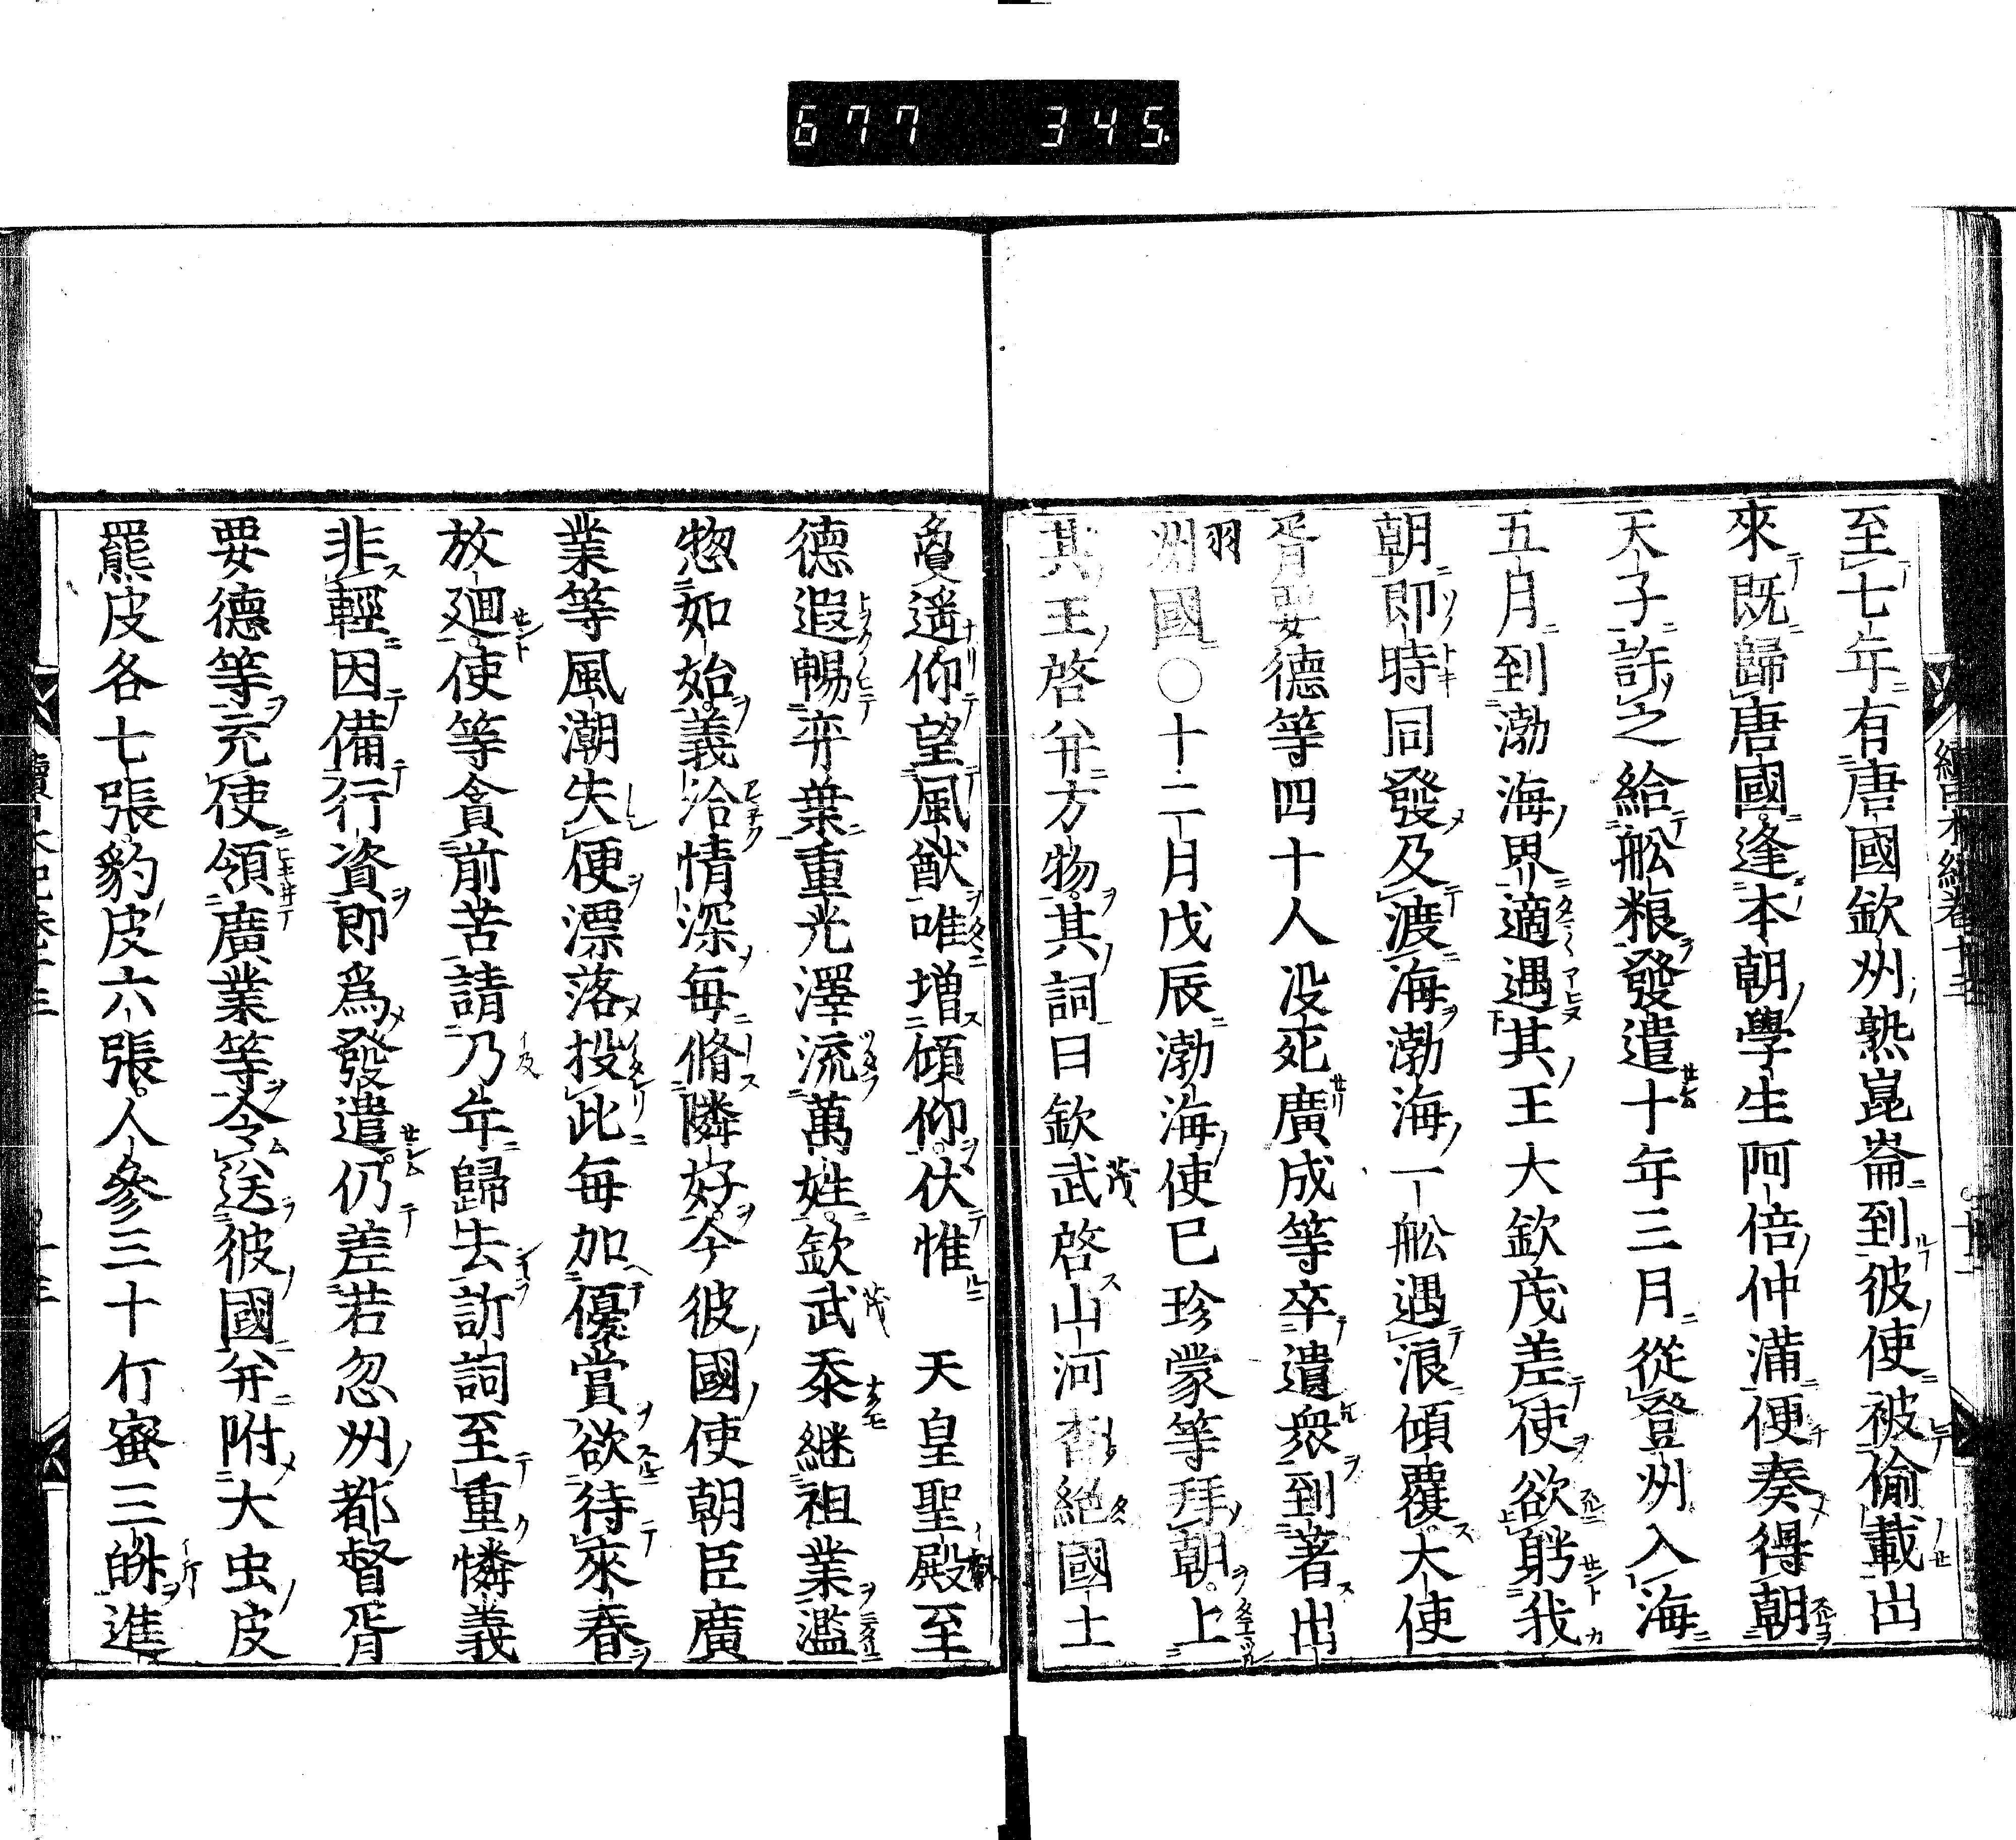 677 345.
至七年有唐國欽州熟崑崙到彼使被偷載出
來既歸唐國逢本朝學生阿倍仲滿便奏得朝
天子許之給舩粮發遣十年三月從登州入海
五月到渤海界適遇其王大欽茂差使欲聘我
朝即時同發及渡海渤海一舩遇浪傾覆大使
胥要德等四十人没死廣成等卒遺衆到著出
羽
州國〇十二月戊辰渤海使巳珍蒙等拜朝上
其王啓并方物其詞曰欽武啓山河杳絕國土
茂
敻遥仰望風猷唯增傾仰伏惟 天皇聖殿至
德遐暢奕葉重光澤流萬姓欽武忝継祖業濫
茂
惣如始義洽情深毎脩隣好今彼國使朝臣廣
業等風潮失便漂落投此毎加優賞欲待來春
放廻使等貪前苦請乃年歸去訴詞至重憐義
非輕因備行資即爲發遣仍差若忽州都督胥
要德等充使領廣業等令送彼國并附大虫皮
羆皮各七張豹皮六張人參三十斤蜜三斛進